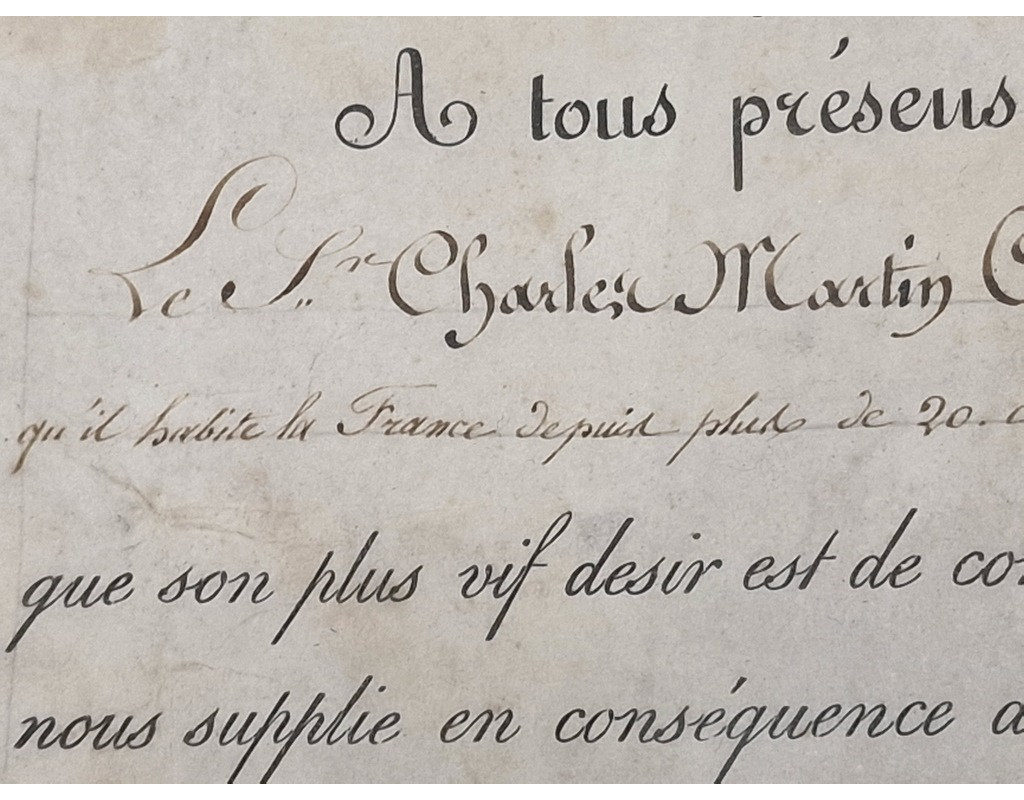 A tous présens
Le Sr. Charles Martin
qu'il habite la France depuis plus de 20.
que son plus vif desir est de
nous supplie en conséquence